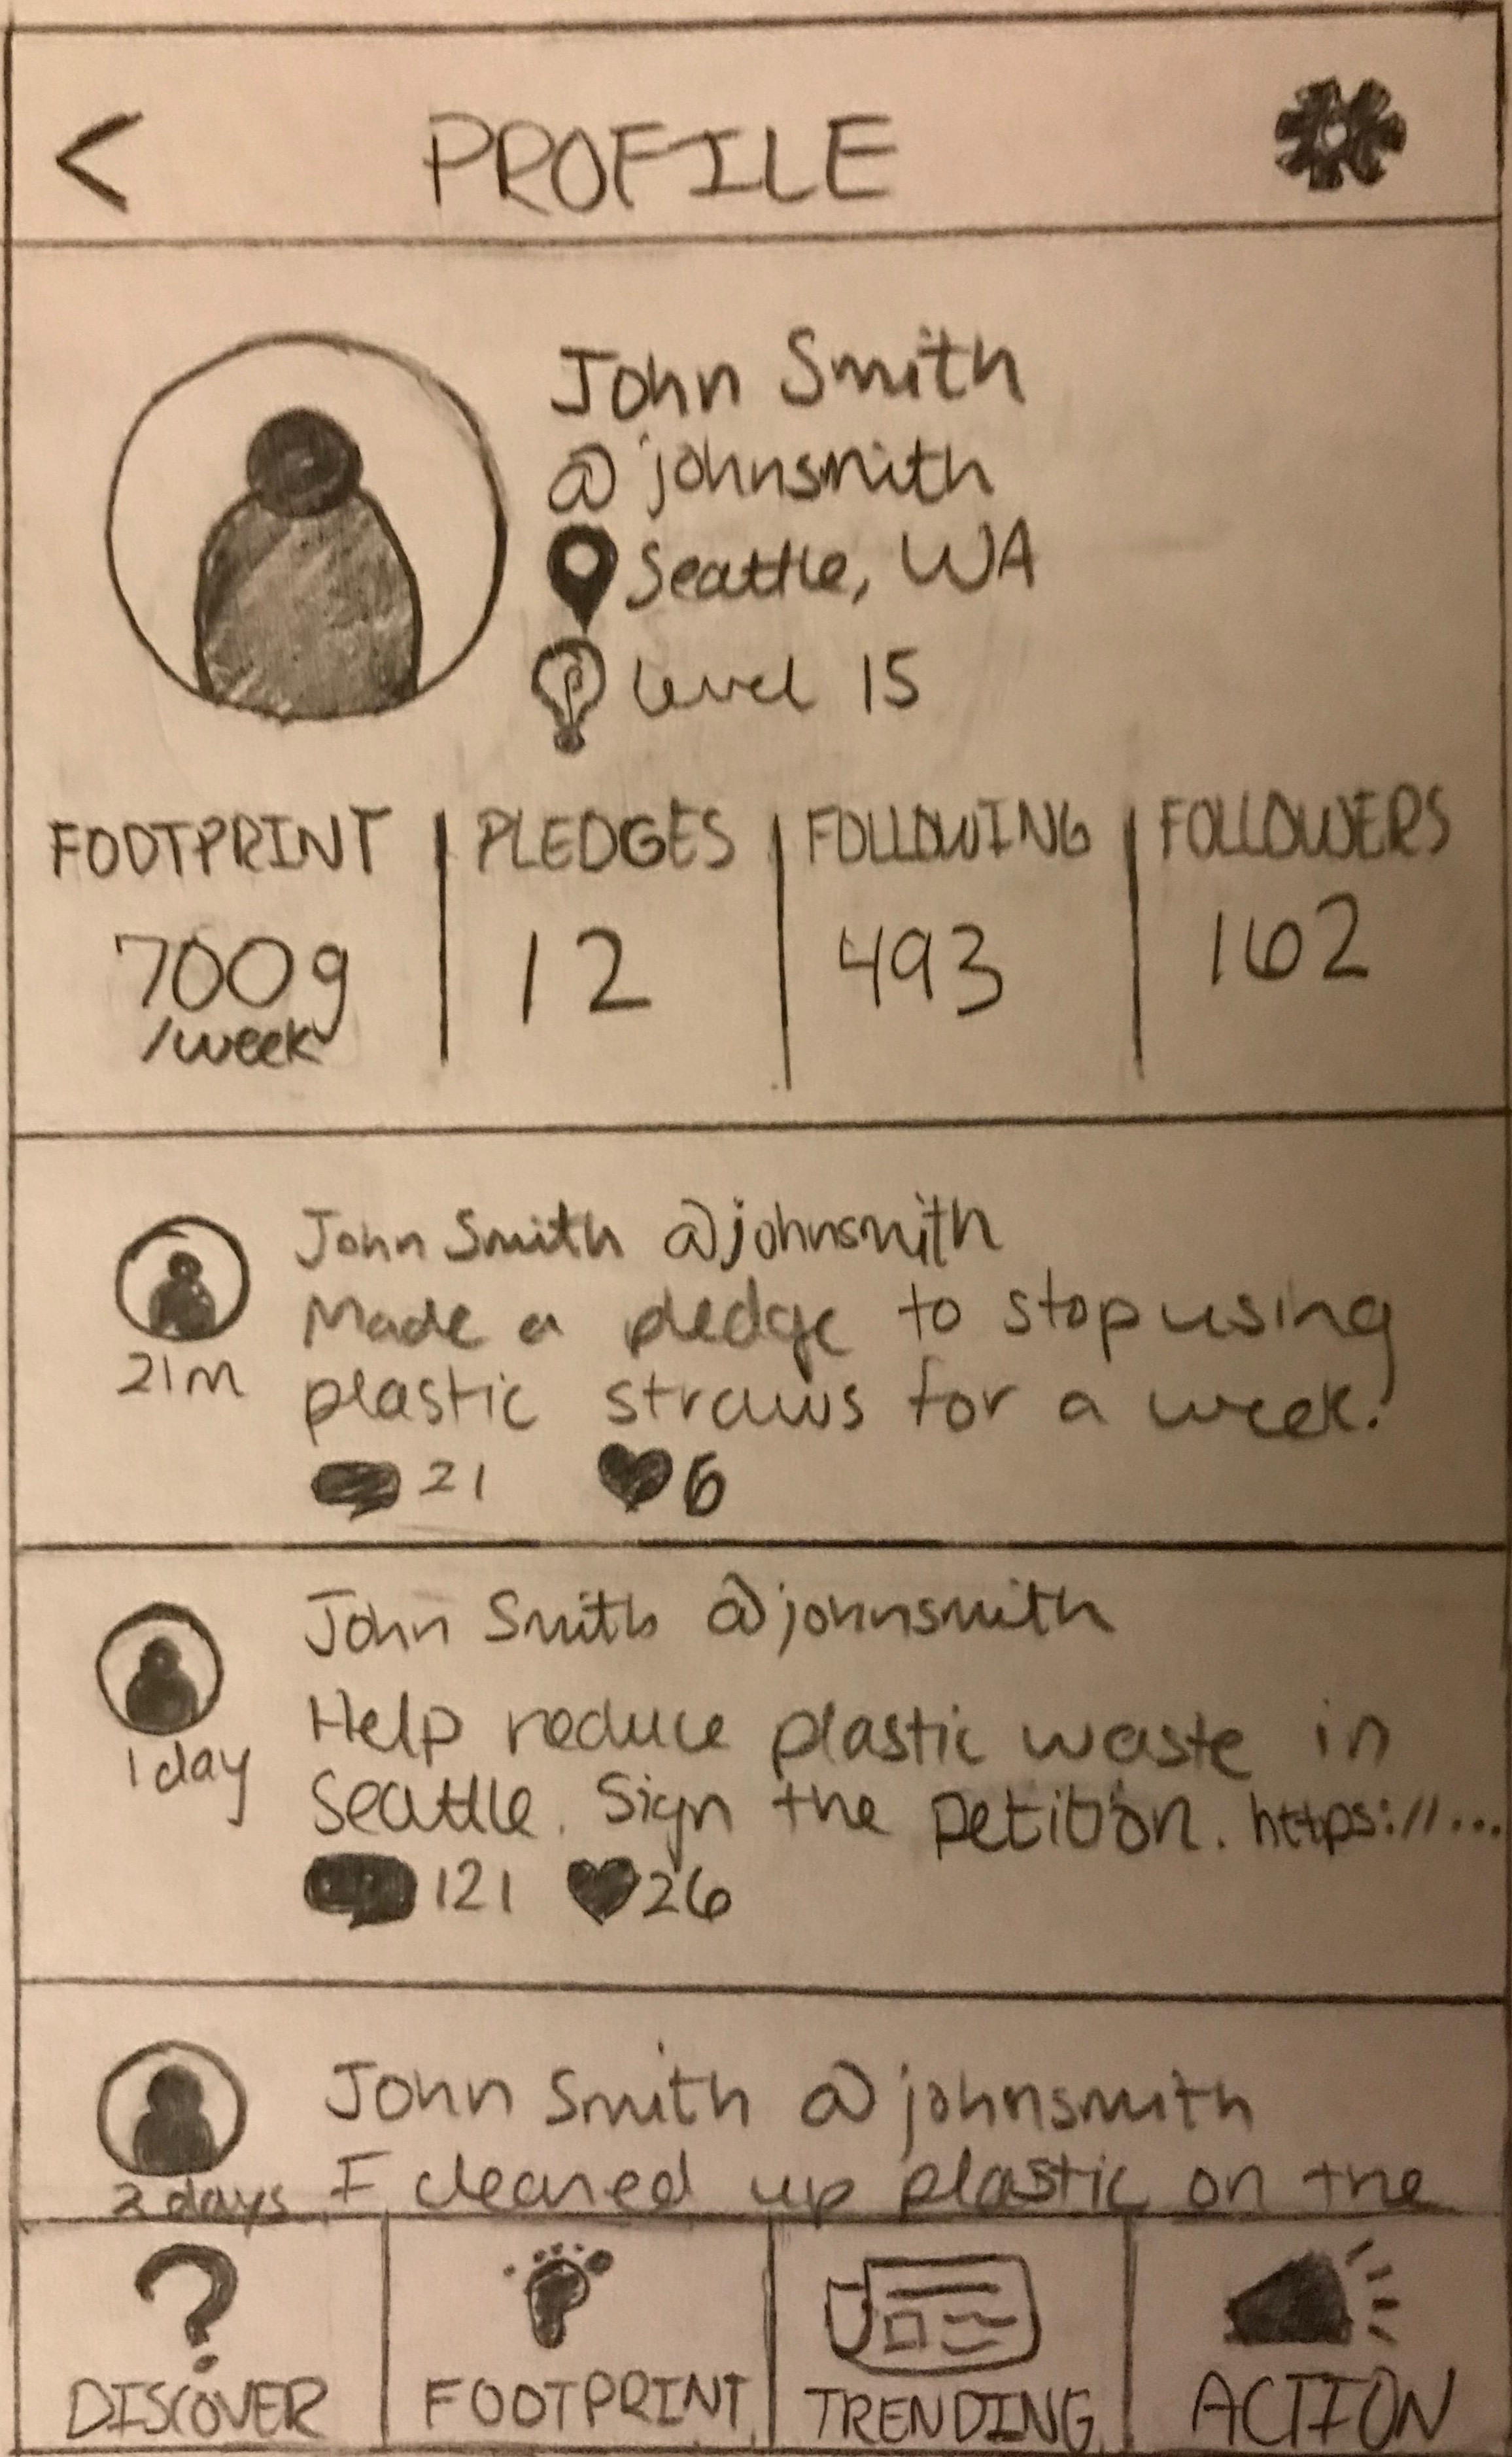 < PROFILE
John Smith
@johnsmith
Seattle, WA
Level 15
FOOTPRINT | PLEDGES | FOLLOWING | FOLLOWERS
700g 12 493 162
/week
John Smith @johnsmith
Made a pledge to stop using
21m plastic straws for a week!
21 6
John Smith @johnsmith
Help reduce plastic waste in
1 day Seattle. Sign the petition. https://...
121 26
John Smith @johnsmith
2 days I cleaned up plastic on the
? 
DISCOVER FOOTPRINT TRENDING ACTION